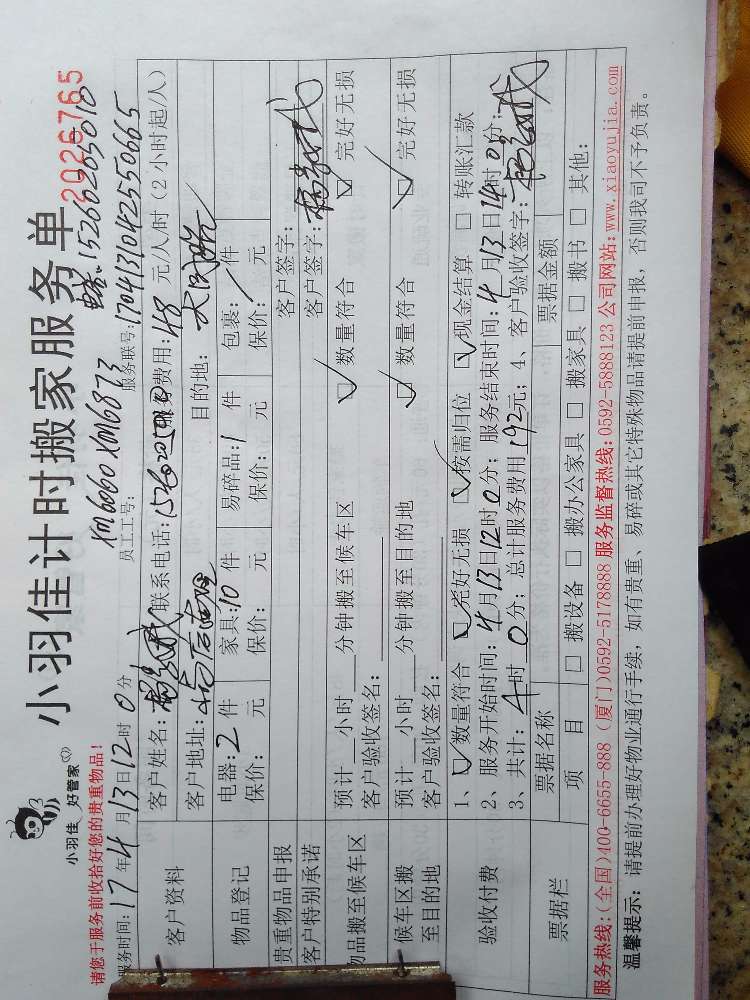 小羽佳 好管家
小羽佳计时搬家服务单
2026765
请您于服务前收拾好您的贵重物品！
XM6060 XM6873
15260205010
服务时间：17年4月13日12时0分 员工工号： 服务联号：1704131042550665
客户资料
客户姓名： 联系电话： 服务费用：48 元/人/时（2小时起/人）
客户地址： 目的地：
物品登记
电器：2件 家具：10件 易碎品：1件 包裹：/件
保价： 元 保价： 元 保价： 元 保价： 元
贵重物品申报 客户签字：
客户特别承诺 客户签字：
物品搬至候车区
预计 小时 分钟搬至候车区 ☑ 数量符合 ☑ 完好无损
客户验收签名：
候车区搬至目的地
预计 小时 分钟搬至目的地 ☑ 数量符合 ☑ 完好无损
客户验收签名：
验收付费
1、☑数量符合 ☑完好无损 ☑按需归位 ☑现金结算 □ 转账汇款
2、服务开始时间：4月13日12时0分；服务结束时间：4月13日14时0分；
3、共计：4时0分；总计服务费用192元；4、客户验收签字：
票据栏
票据名称 票据金额
项 目 □ 搬设备 □ 搬办公家具 □ 搬家具 □ 搬书 □ 其他：
服务热线：(全国)400-6655-888 (厦门)0592-5178888 服务监督热线：0592-5888123 公司网站：www.xiaoyujia.com
温馨提示：请提前办理好物业通行手续，如有贵重、易碎或其它特殊物品请提前申报，否则我司不予负责。